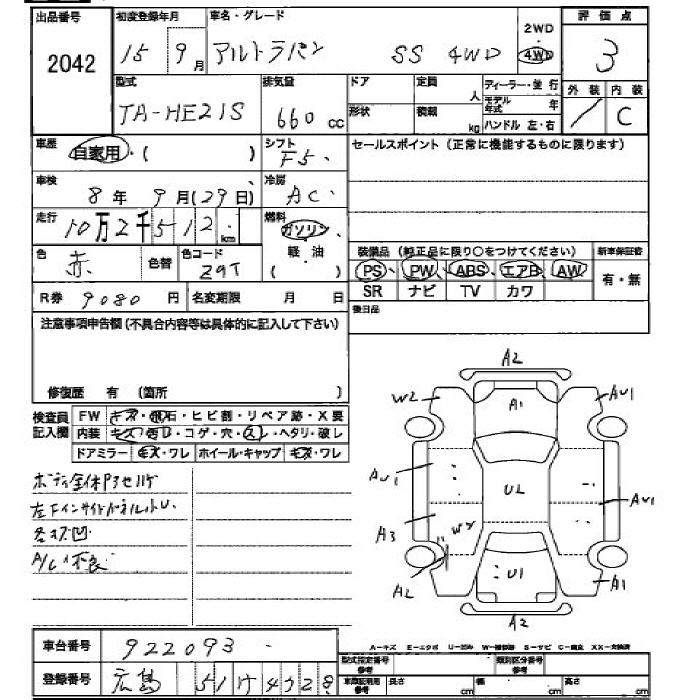 出品番号 初度登録年月 車名・グレード 2WD 評価点
2042 15 9月 アルトラパン SS 4WD 4WD 3
型式 排気量 ドア 定員 人 ディーラー・並行 外装 内装
TA-HE21S 660 cc 形状 積載 kg モデル年式 年 / C
ハンドル 左・右
車歴 自家用・( ) シフト F5 セールスポイント(正常に機能するものに限ります)
車検 8年 9月(29日) 冷房 AC
走行 10万2千512km 燃料 ガソリン
軽・油
( )
色 赤 色替 色コード Z9T 装備品(純正品に限り〇をつけてください) 新車保証書
PS PW ABS エアB AW 有・無
R券 9080円 名変期限 月 日 SR ナビ TV カワ
後日品
注意事項申告欄(不具合内容等は具体的に記入して下さい)
修復歴 有 (箇所 )
検査員記入欄 FW キズ・飛石・ヒビ割・リペア跡・X要
内装 キズ・・コゲ・穴・スレ・ヘタリ・破レ
ドアミラー キズ・ワレ ホイール・キャップ キズ・ワレ
ボディ全体
左Fインサイドパネル
各キズ凹
A/C不良
A2
W2 A1 AU1
AU1 U2 AU1
A3 W2
A2 U1 A1
A2
A-キズ E-エクボ U-凹み W-補修跡 S-サビ C-腐食 XX-交換済
車台番号 922093
型式指定番号 参考 類別区分番号 参考
登録番号 広島 51
車庫証明用 参考 長さ cm 幅 cm 高さ cm